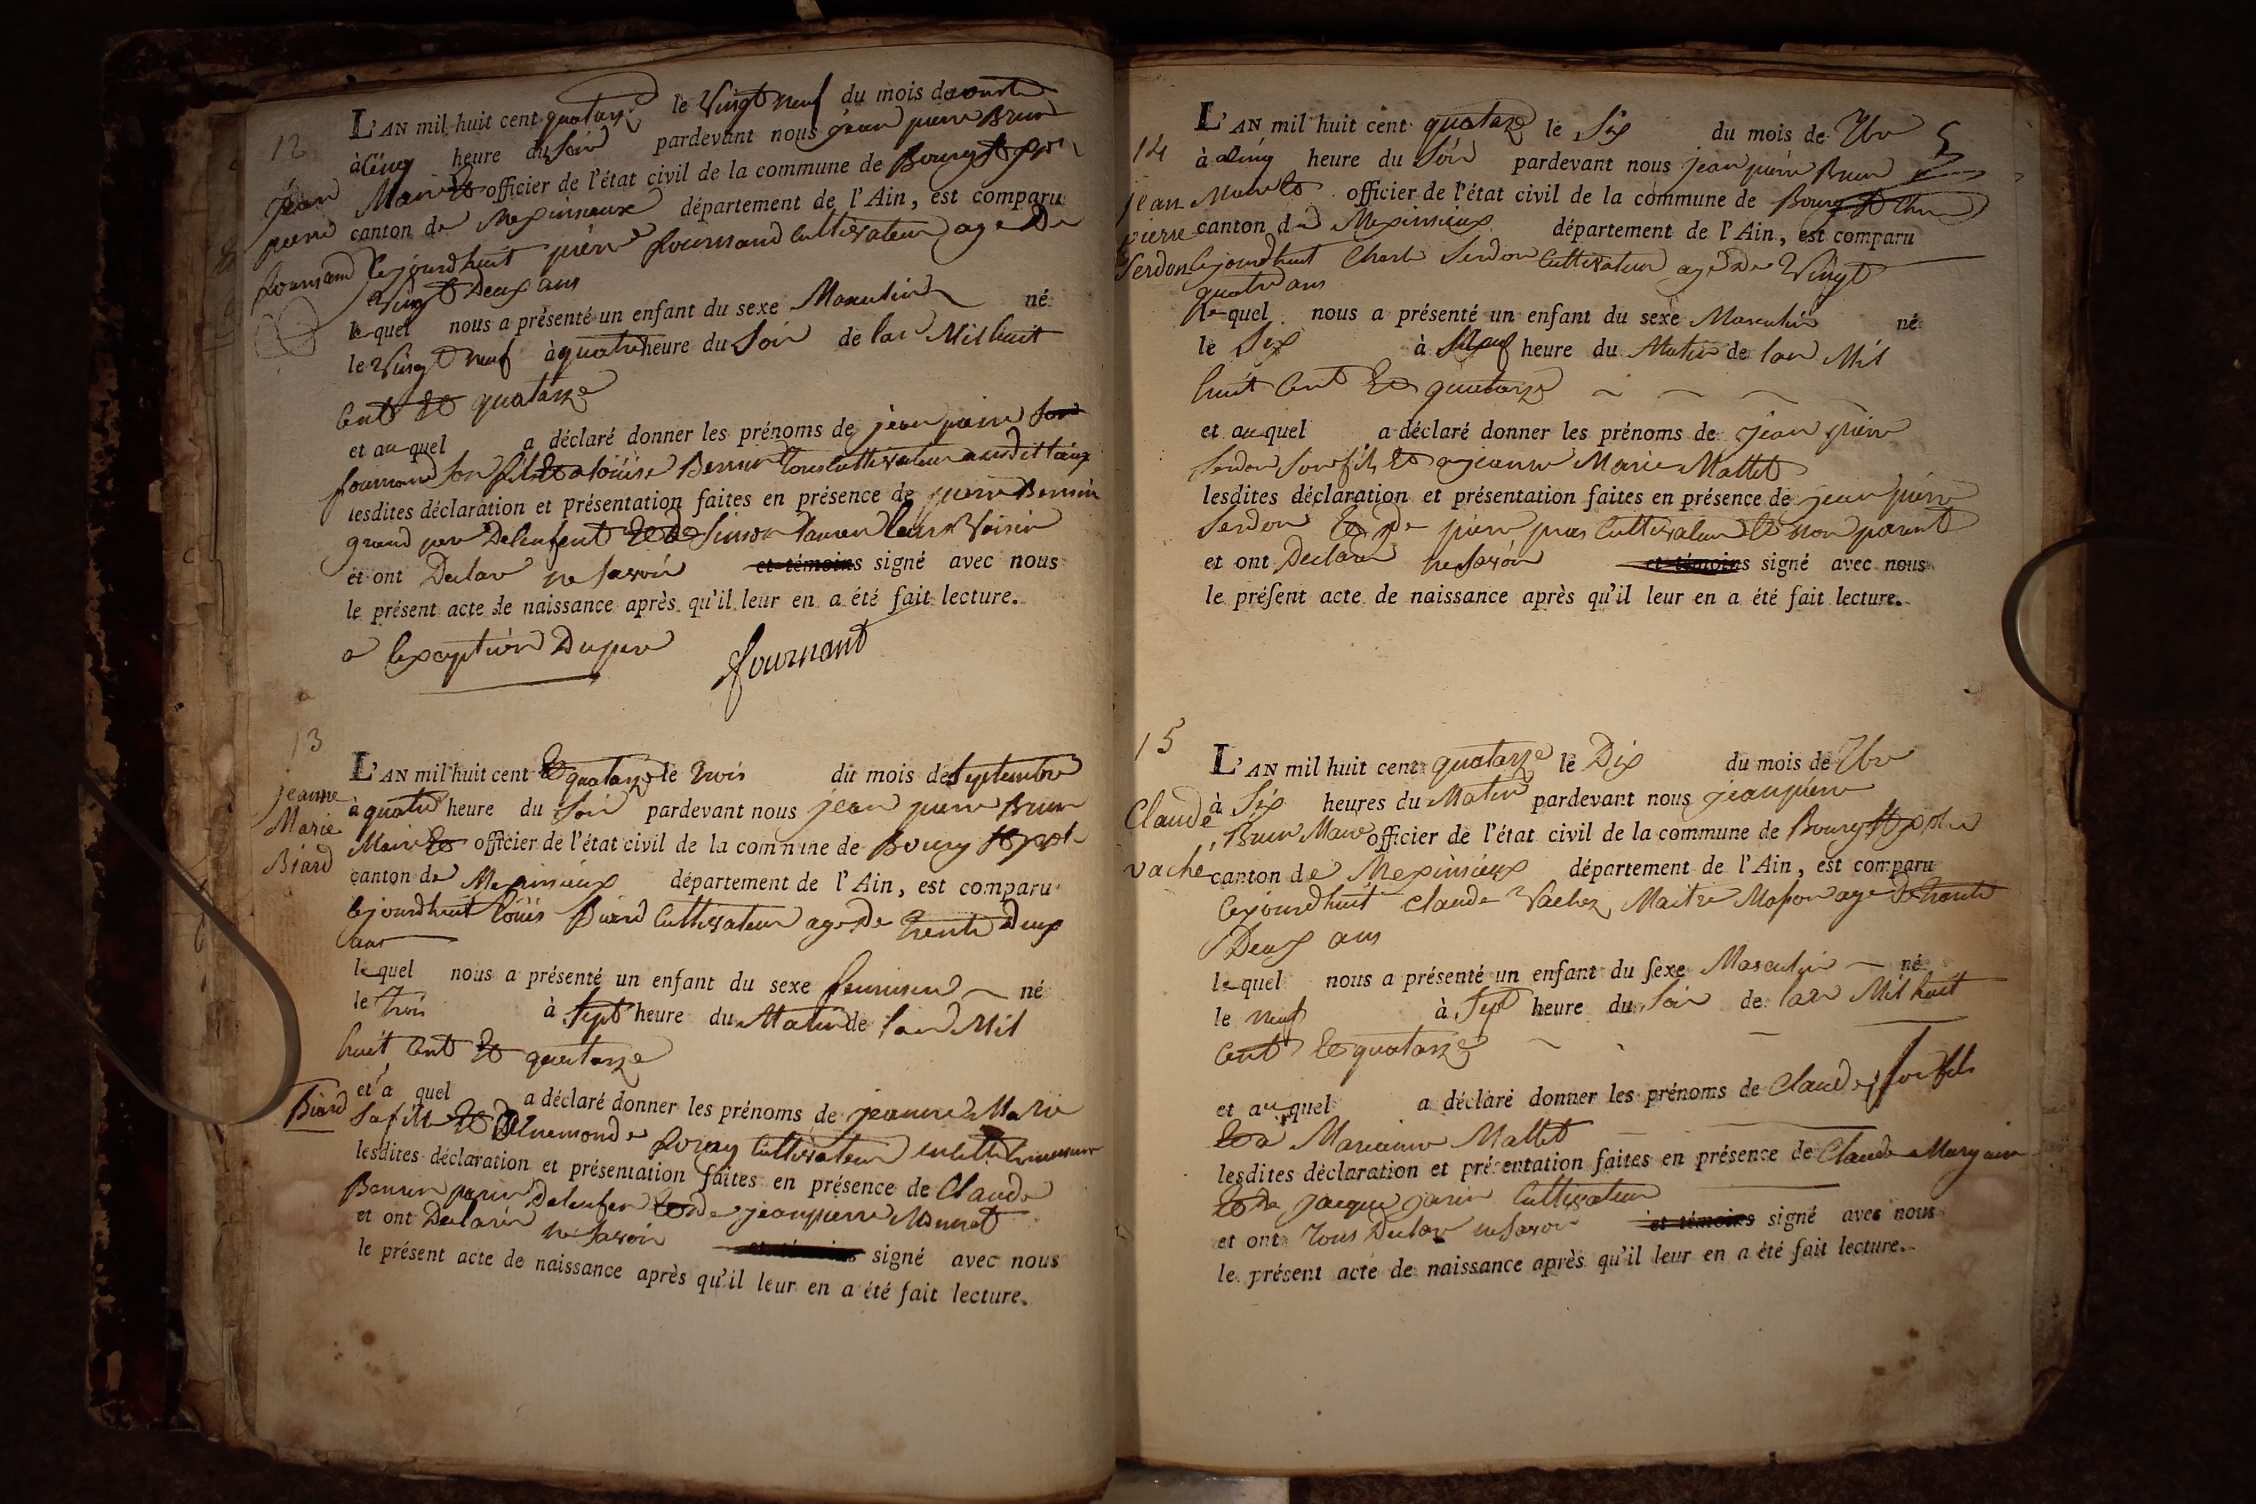 12
jean
pierre
fournand
L'AN mil huit cent quatorze le vingt neuf du mois de aoust
à cinq heure du soir pardevant nous jean pierre Brun
Maire et officier de l'état civil de la commune de Bourg St
canton de Meximieux département de l'Ain, est comparu
cejourdhuit pierre fournand cultivateur age De
vingt Deux ans
le quel nous a présenté un enfant du sexe Masculin né
le vingt neuf à quatre heure du soir de lan Mil huit
cent et quatorze
et au quel a déclaré donner les prénoms de jean pierre
fournand son fils et a loüise tous cultivateur audit lieux
lesdites déclaration et présentation faites en présence de pierre
grand per De lenfent et de Simon leur voisin
et ont Declare ne savoir et témoins signé avec nous
le présent acte de naissance après qu'il leur en a été fait lecture.
a lexception Du pere
fournant
13
jeanne
Marie
Biard
L'AN mil huit cent et quatorze le trois du mois de septembre
à quatre heure du soir pardevant nous jean pierre Brun
Maire et officier de l'état civil de la commune de Bourg St
canton de Meximieux département de l'Ain, est comparu
cejourdhuit loüis Biard cultivateur age De trente Deux
ans
le quel nous a présenté un enfant du sexe feminin né
le trois à sept heure du Matin de lan Mil
huit cent et quatorze
et à quel a déclaré donner les prénoms de jeanne Marie
Biard sa fille et cultivateur
lesdites déclaration et présentation faites en présence de Claude
De lenfen et de jean pierre Monnet
et ont Declarer ne savoir et témoins signé avec nous
le présent acte de naissance après qu'il leur en a été fait lecture.
14
jean
pierre
Serdon
L'AN mil huit cent quatorze le Six du mois de 7bre 5
à cinq heure du Soir pardevant nous jean pierre Brun
Maire et officier de l'état civil de la commune de Bourg St
canton de Meximieux département de l'Ain, est comparu
cejourdhuit Charle Serdon Cultivateur age De vingt
quatre ans
le quel nous a présenté un enfant du sexe Masculin né
le Six à heure du Matin de lan Mil
huit cent et quatorze
et au quel a déclaré donner les prénoms de jean pierre
Serdon son fils et a jeanne Marie Mallet
lesdites déclaration et présentation faites en présence de jean pierre
Serdon et De pierre cultivateur et non parent
et ont Declare ne savoir et témoins signé avec nous
le présent acte de naissance après qu'il leur en a été fait lecture.
15
Claude
vache
L'AN mil huit cent quatorze le Dix du mois de 7bre
à Six heures du Matin pardevant nous jean pierre
Brun Maire officier de l'état civil de la commune de Bourg St
canton de Meximieux département de l'Ain, est comparu
cejourdhuit Claude vachez Maitre Masson age De trente
Deux ans
le quel nous a présenté un enfant du sexe Masculin né
le neuf à Sept heure du Soir de lan Mil huit
cent et quatorze
et au quel a déclaré donner les prénoms de Claude son fils
et a Mallet
lesdites déclaration et présentation faites en présence de Claude
et de jacque cultivateur
et ont tous Declare ne savoir et témoins signé avec nous
le présent acte de naissance après qu'il leur en a été fait lecture.